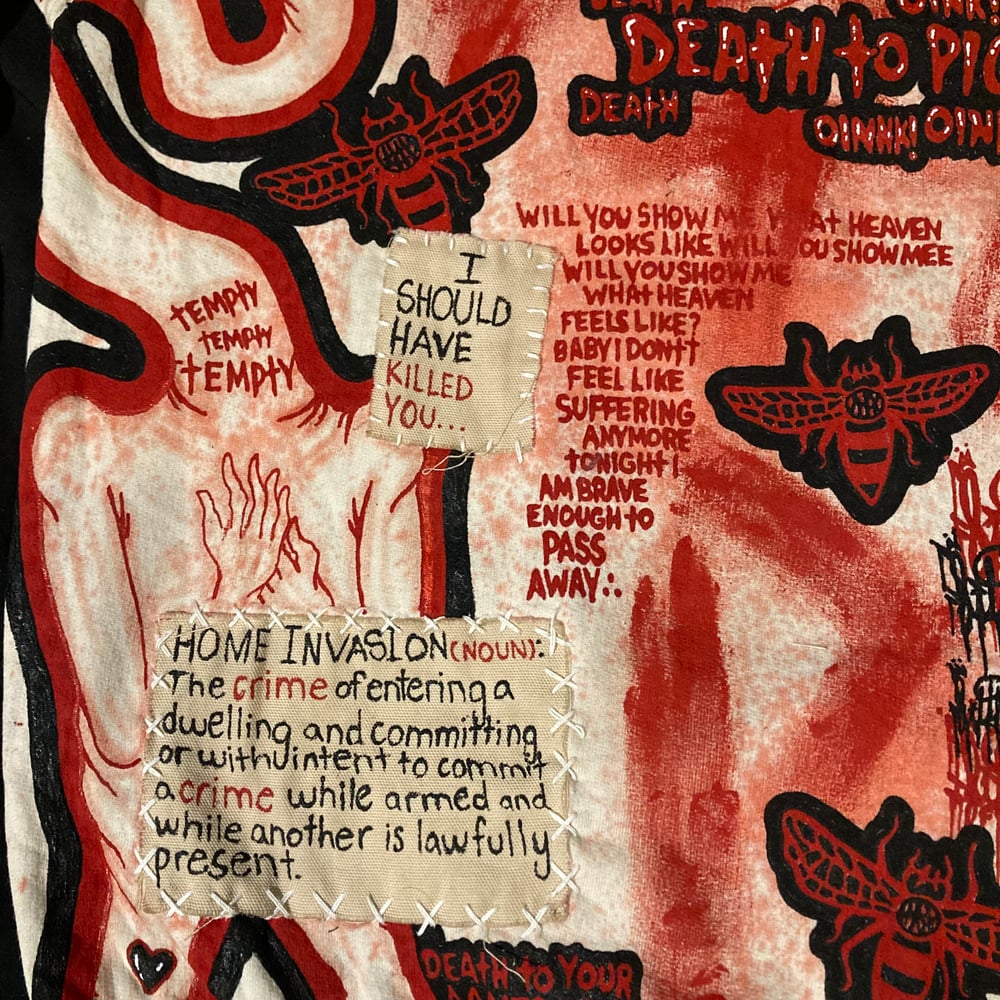 DEATH to PIG
DEATH
OINNK! OIN
WILL YOU SHOW ME WHAT HEAVEN
LOOKS LIKE WILL YOU SHOWMEE
WILL YOU SHOW ME
WHAT HEAVEN
FEELS LIKE?
BABY I DONTT
FEEL LIKE
SUFFERING
ANYMORE
tONIGHt I
AM BRAVE
ENOUGH tO
PASS
AWAY:.
tEMPtY
tEMPtY
tEMPtY
I
SHOULD
HAVE
KILLED
YOU...
HOME INVASION (NOUN):
The crime of entering a
dwelling and committing
or with intent to commit
a crime while armed and
while another is lawfully
present.
DEATH to YOUR